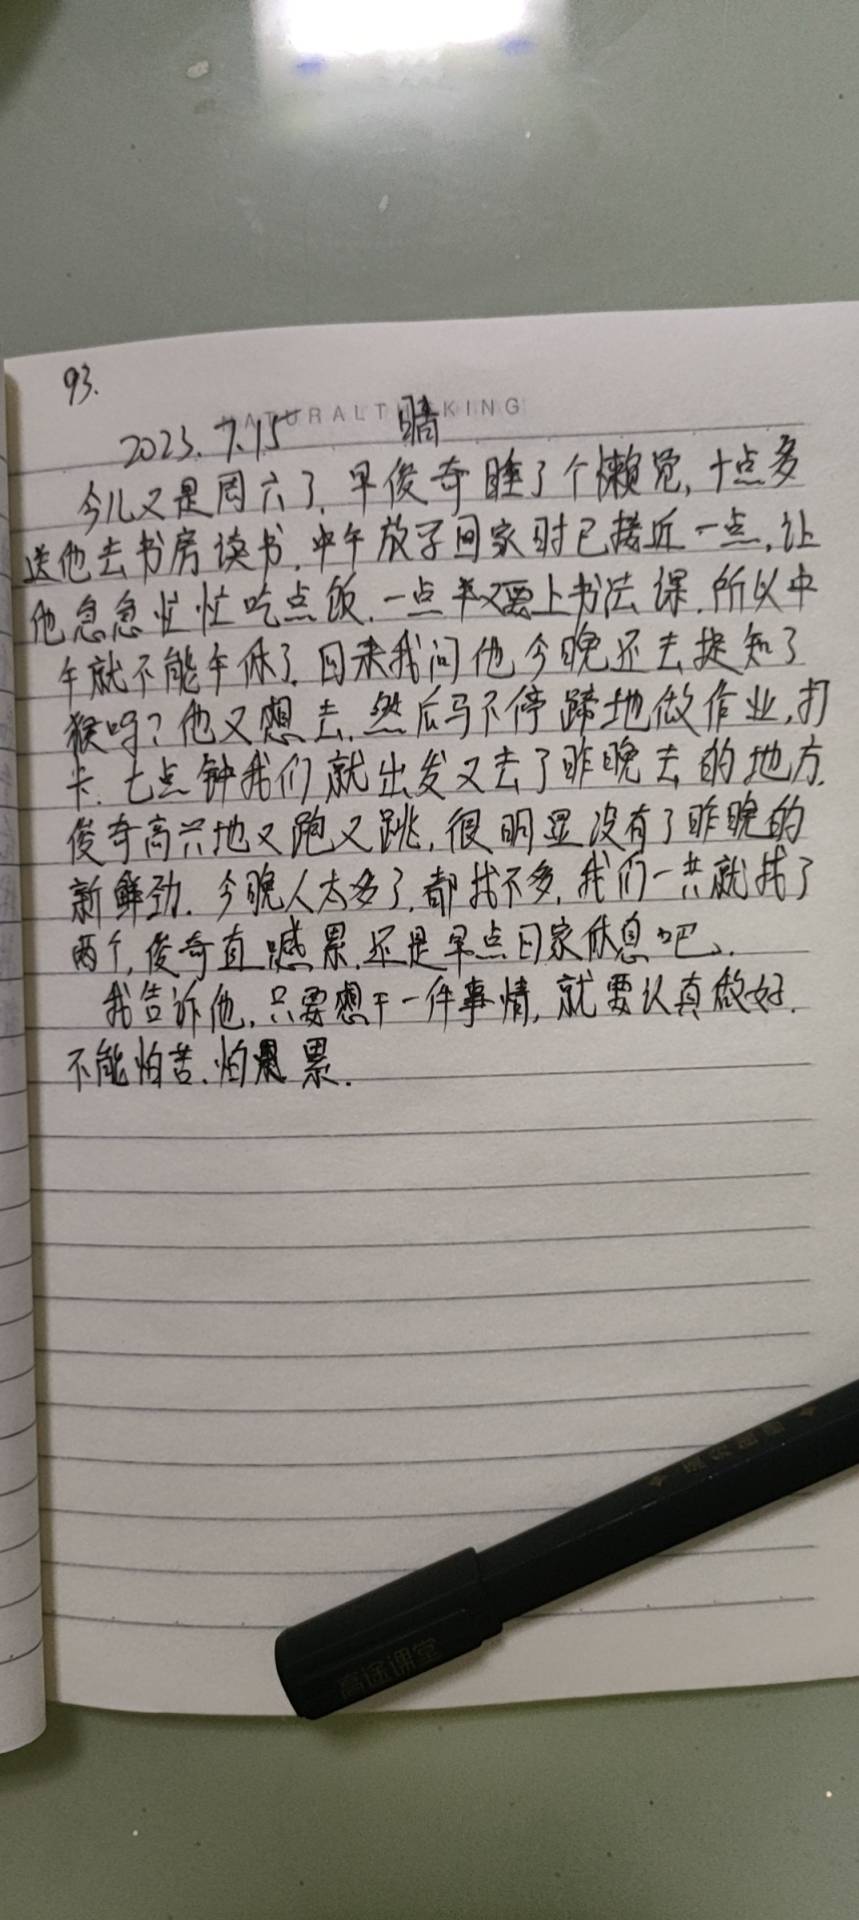 93.
NATURALTHINKING
2023.7.15 晴
今儿又是周六了,早俊奇睡了个懒觉,十点多
送他去书房读书.中午放学回家时已接近一点,让
他急急忙忙吃点饭.一点半又要上书法课.所以中
午就不能午休了.回来我问他今晚还去捉知了
猴吗?他又想去.然后马不停蹄地做作业,打
卡.七点钟我们就出发又去了昨晚去的地方.
俊奇高兴地又跑又跳,很明显没有了昨晚的
新鲜劲.今晚人太多了,都找不多,我们一共就找了
两个,俊奇直喊累.还是早点回家休息吧.
我告诉他,只要想干一件事情,就要认真做好.
不能怕苦.怕累.
高途课堂